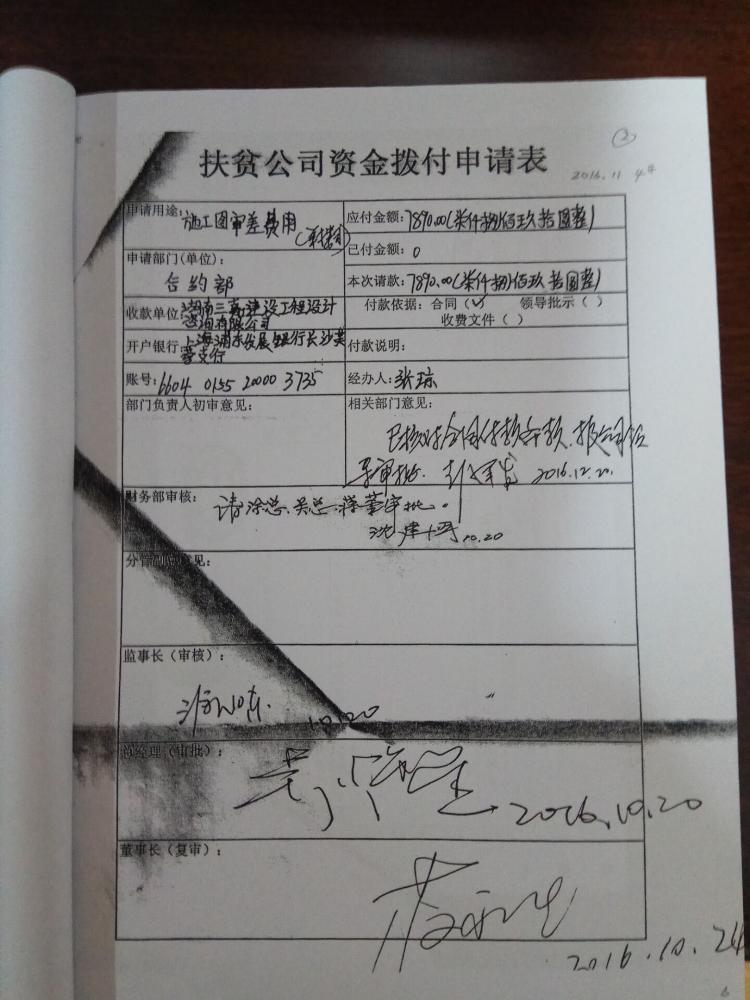 ②
扶贫公司资金拨付申请表
2016.11 4#
申请用途: 施工图审查费用
应付金额: 7890.00(柒仟捌佰玖拾圆整)
已付金额: 0
申请部门(单位):
合约部
本次请款: 7890.00(柒仟捌佰玖拾圆整)
收款单位: 湖南三高建设工程设计
咨询有限公司
付款依据: 合同(√) 领导批示( )
收费文件( )
开户银行: 上海浦东发展银行长沙芙
蓉支行
付款说明:
账号: 6604 0155 20000 3735
经办人: 张琼
部门负责人初审意见:
相关部门意见:
已核对合同付款条款，报公司领
导审批. 2016.12.20.
财务部审核: 请涂总、吴总、蔡董审批。
10.20
分管副总意见:
监事长（审核）:
10.20
总经理（审批）:
2016.10.20
董事长（复审）:
2016.10.24